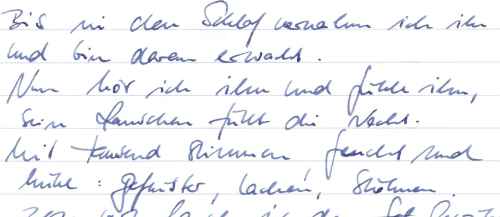 Bis in den Schlaf vernahm ich ihn
und bin daran erwacht.
Nun hör ich ihn und fühle ihn,
sein Rauschen füllt die Nacht.
Mit tausend Stimmen feucht und
kühl: Geflüster, Lachen, Stöhnen.